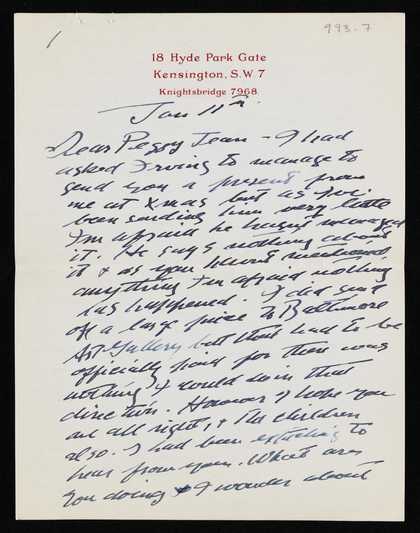 993.7
18 Hyde Park Gate
Kensington, S.W 7
Knightsbridge 7968
Jan 11th.
Dear Peggy Jean - I had
asked Irving to manage to
send you a present from
me at Xmas but as I've
been sending him very little
I'm afraid he hasn't managed
it. He says nothing about
it & as you haven't mentioned
anything I'm afraid nothing
has happened. I did send
off a large piece to Baltimore
Art Gallery but that had to be
officially paid for there was
nothing I could do in that
direction. However I hope you
are all right, & the children
also. I had been expecting to
hear from you. What are
you doing & I wonder about